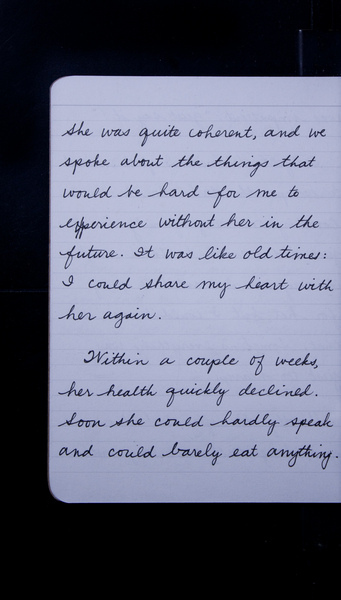 She was quite coherent, and we
spoke about the things that
would be hard for me to
experience without her in the
future. It was like old times:
I could share my heart with
her again.
Within a couple of weeks,
her health quickly declined.
Soon she could hardly speak
and could barely eat anything.